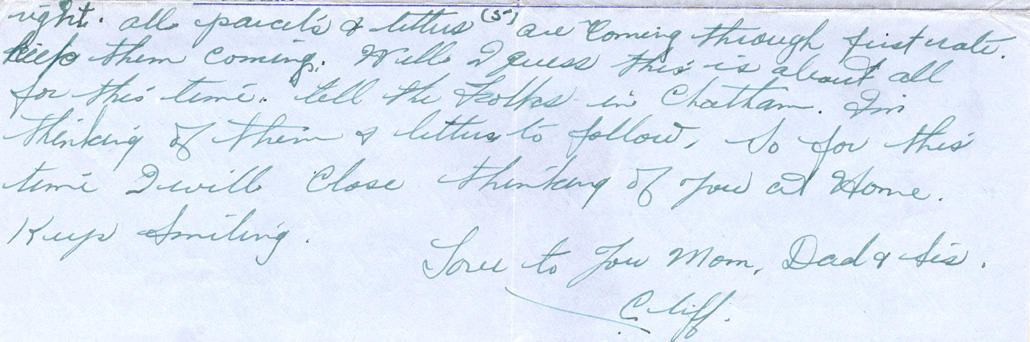 right. all parcels & letters (5) are Coming through first rate.
keep them coming. Well I guess this is about all
for this time. tell the Folks in Chatham. I'm
thinking of them & letters to follow, So for this
time I will Close thinking of you at Home.
Keep Smiling.
Love to You Mom, Dad & Sis.
Cliff.